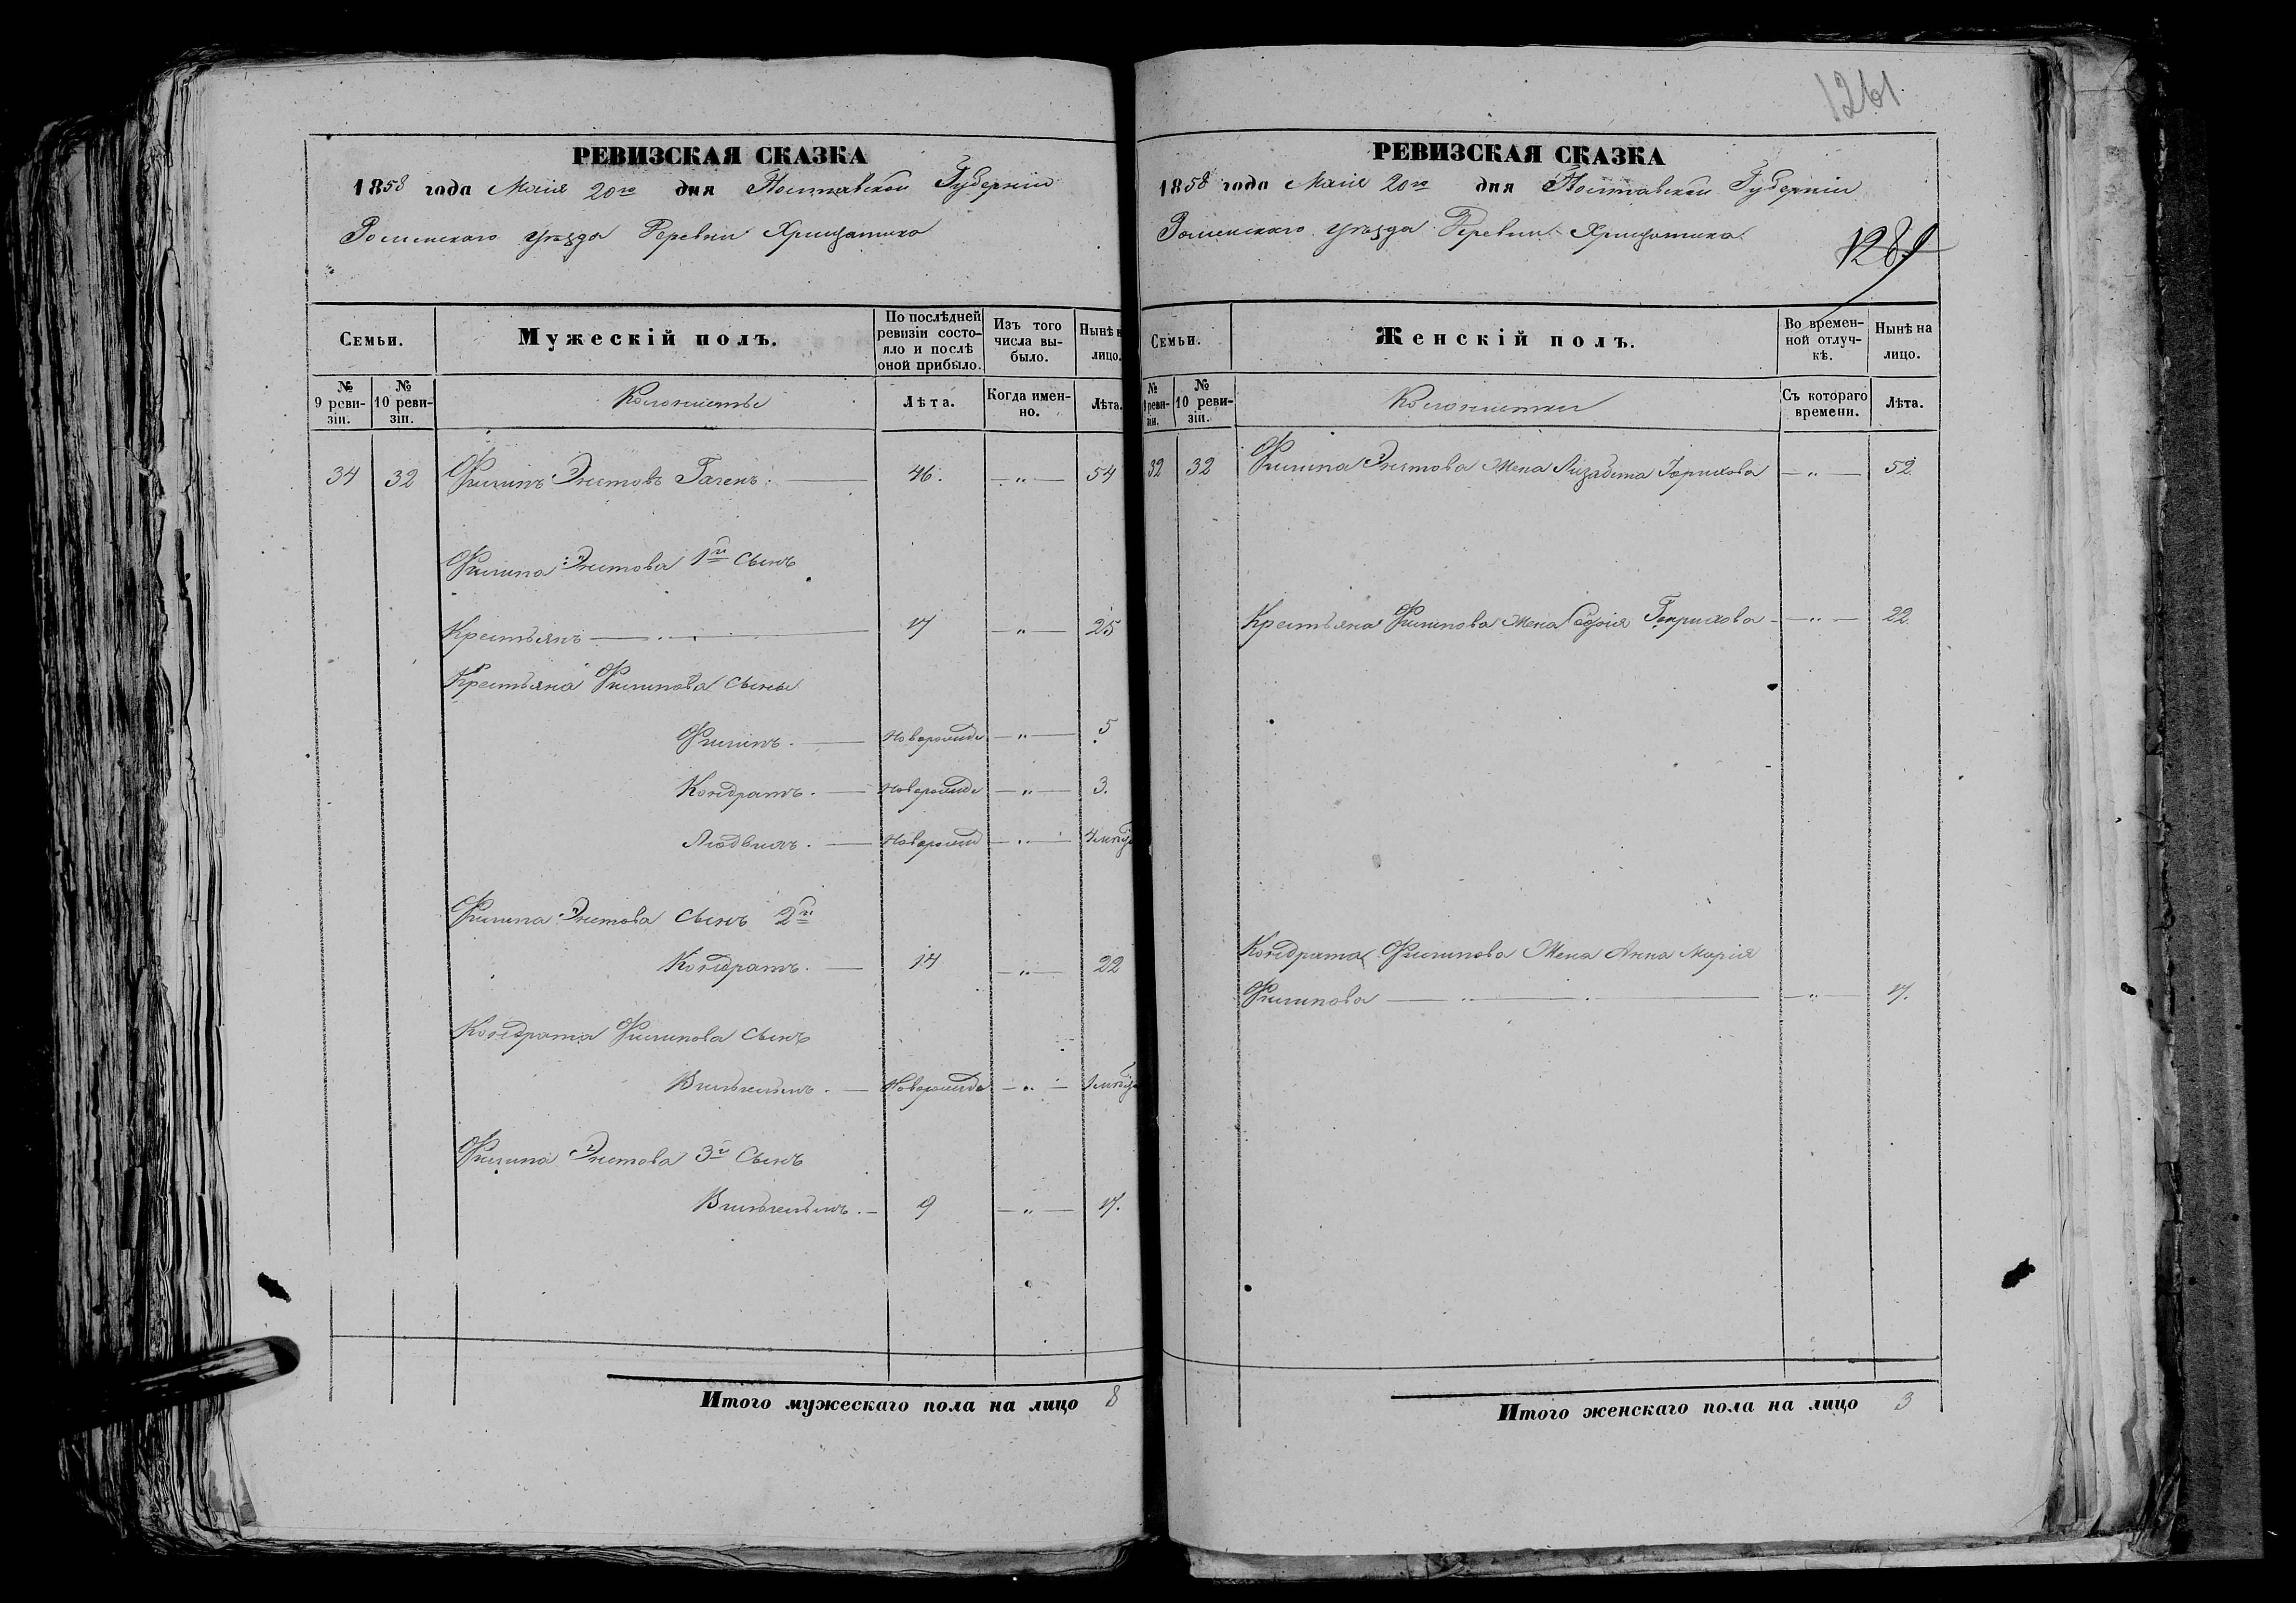 РЕВИЗСКАЯ СКАЗКА
1858 года Маія 20го дня Полтавской Губерніи
Роменскаго уѣзда Деревни Хрищатика
Семьи.
Мужескій полъ.
По послѣдней ревизіи состояло и послѣ оной прибыло.
Изъ того числа выбыло.
Нынѣ на лицо.
№ 9 ревизіи.
№ 10 ревизіи.
Колонисты
Лѣта.
Когда именно.
Лѣта.
34 32 Филипъ Энстовъ Гагенъ. 46. — „ — 54
Филипа Энстова 1й сынъ
Крестьянъ 17 — „ — 25
Крестьяна Филипова сыны
Филипъ. Новорожде — „ — 5
Кондратъ. Новорожде — „ — 3.
Людвихъ. Новорожд — „ — 4 мѣся
Филипа Энстова сынъ 2й
Кондратъ. 14 — „ — 22
Кондрата Филипова сынъ
Вильгельмъ. Новорожде — „ — 1 мѣся
Филипа Энстова 3й Сынъ
Вильгельмъ. 9 — „ — 17.
Итого мужескаго пола на лицо 8
1261
РЕВИЗСКАЯ СКАЗКА
1858 года Маія 20го дня Полтавской Губерніи
Роменскаго уѣзда Деревни Хрищатика
1289
Семьи.
Женскій полъ.
Во временной отлучкѣ.
Нынѣ на лицо.
№ 9 ревизіи.
№ 10 ревизіи.
Колонистки
Съ котораго времени.
Лѣта.
32 32 Филипа Энстова Жена Лизабета Юрихова — „ — 52
Крестьяна Филипова Жена Софія Гендрихова — „ — 22
Кондрата Филипова Жена Анна Марія
Филипова — „ — 17.
Итого женскаго пола на лицо 3